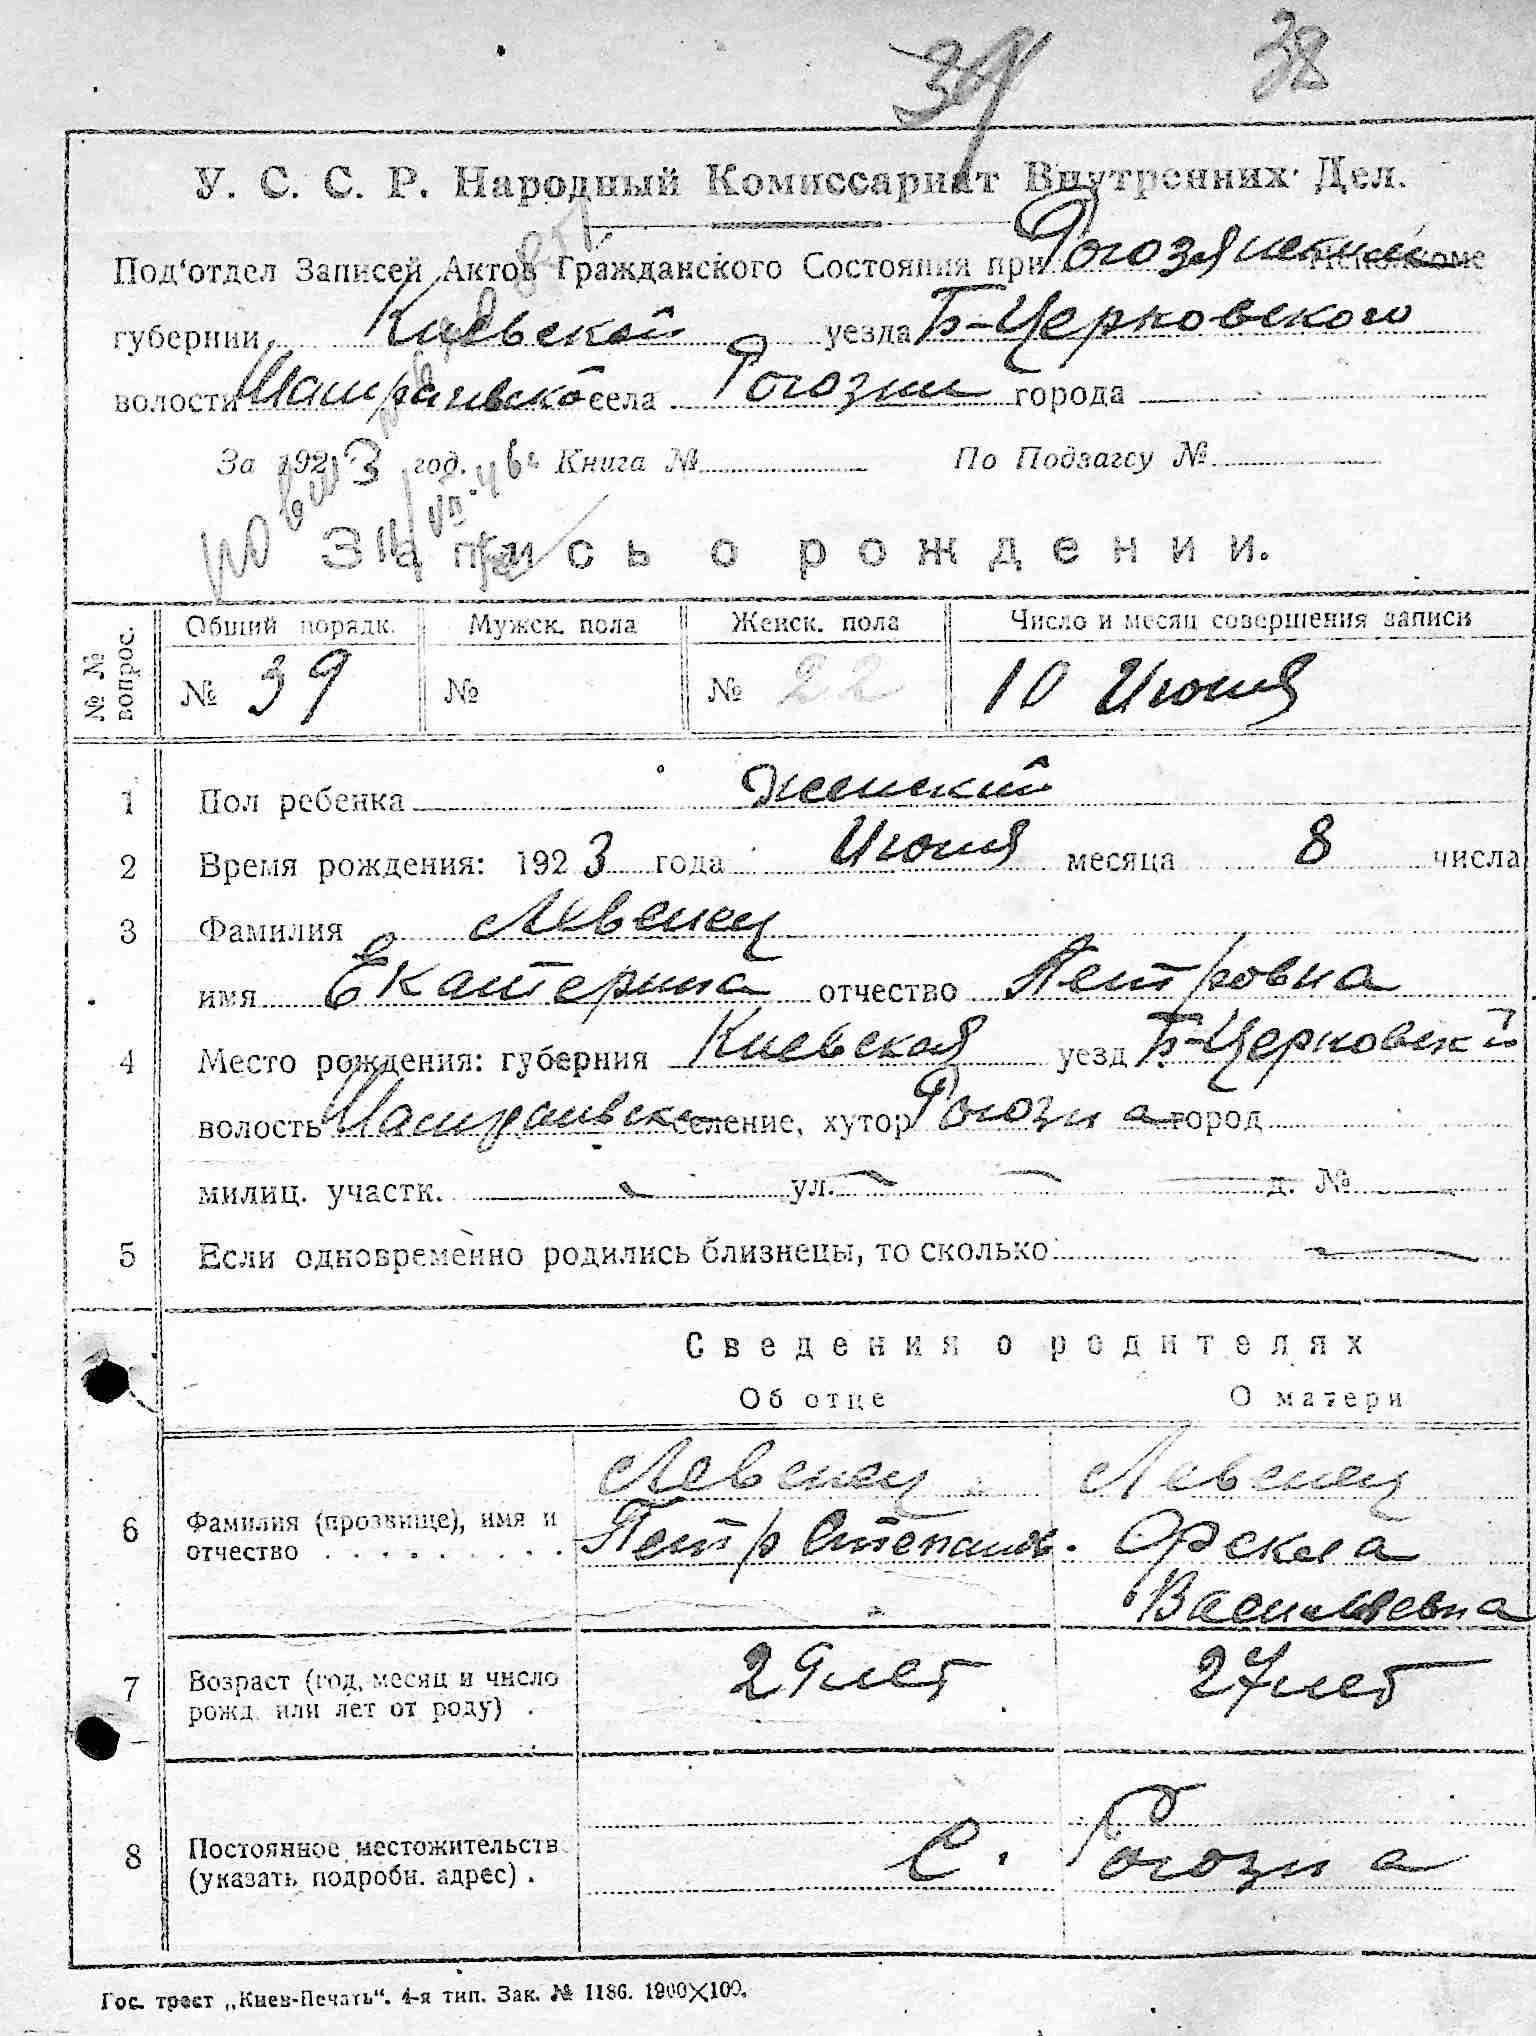 39 38
У. С. С. Р. Народный Комиссариат Внутренних Дел.
Под'отдел Записей Актов Гражданского Состояния при Рогозянском Исполкоме
губернии Киевской уезда Б-Церковского
волости села Рогозни города
За 1923 год. Книга № По Подзагсу №
Запись о рождении.
№ № вопрос. Общий порядк. Мужск. пола Женск. пола Число и месяц совершения записи
№ 39 № № 22 10 Июня
1 Пол ребенка женский
2 Время рождения: 1923 года Июня месяца 8 числа
3 Фамилия Левенец
имя Екатерина отчество Петровна
4 Место рождения: губерния Киевская уезд Б-Церковский
волость селение, хутор Рогозна город
милиц. участк. ул. д. №
5 Если одновременно родились близнецы, то сколько
Сведения о родителях
Об отце О матери
Левенец Левенец
6 Фамилия (прозвище), имя и отчество Петр Степанов. Фекла
Васильевна
7 Возраст (год, месяц и число рожд. или лет от роду) 29 лет 27 лет
8 Постоянное местожительств (указать подробн. адрес) С. Рогозна
Гос. трест „Киев-Печать“. 4-я тип. Зак. № 1186. 1900×100.